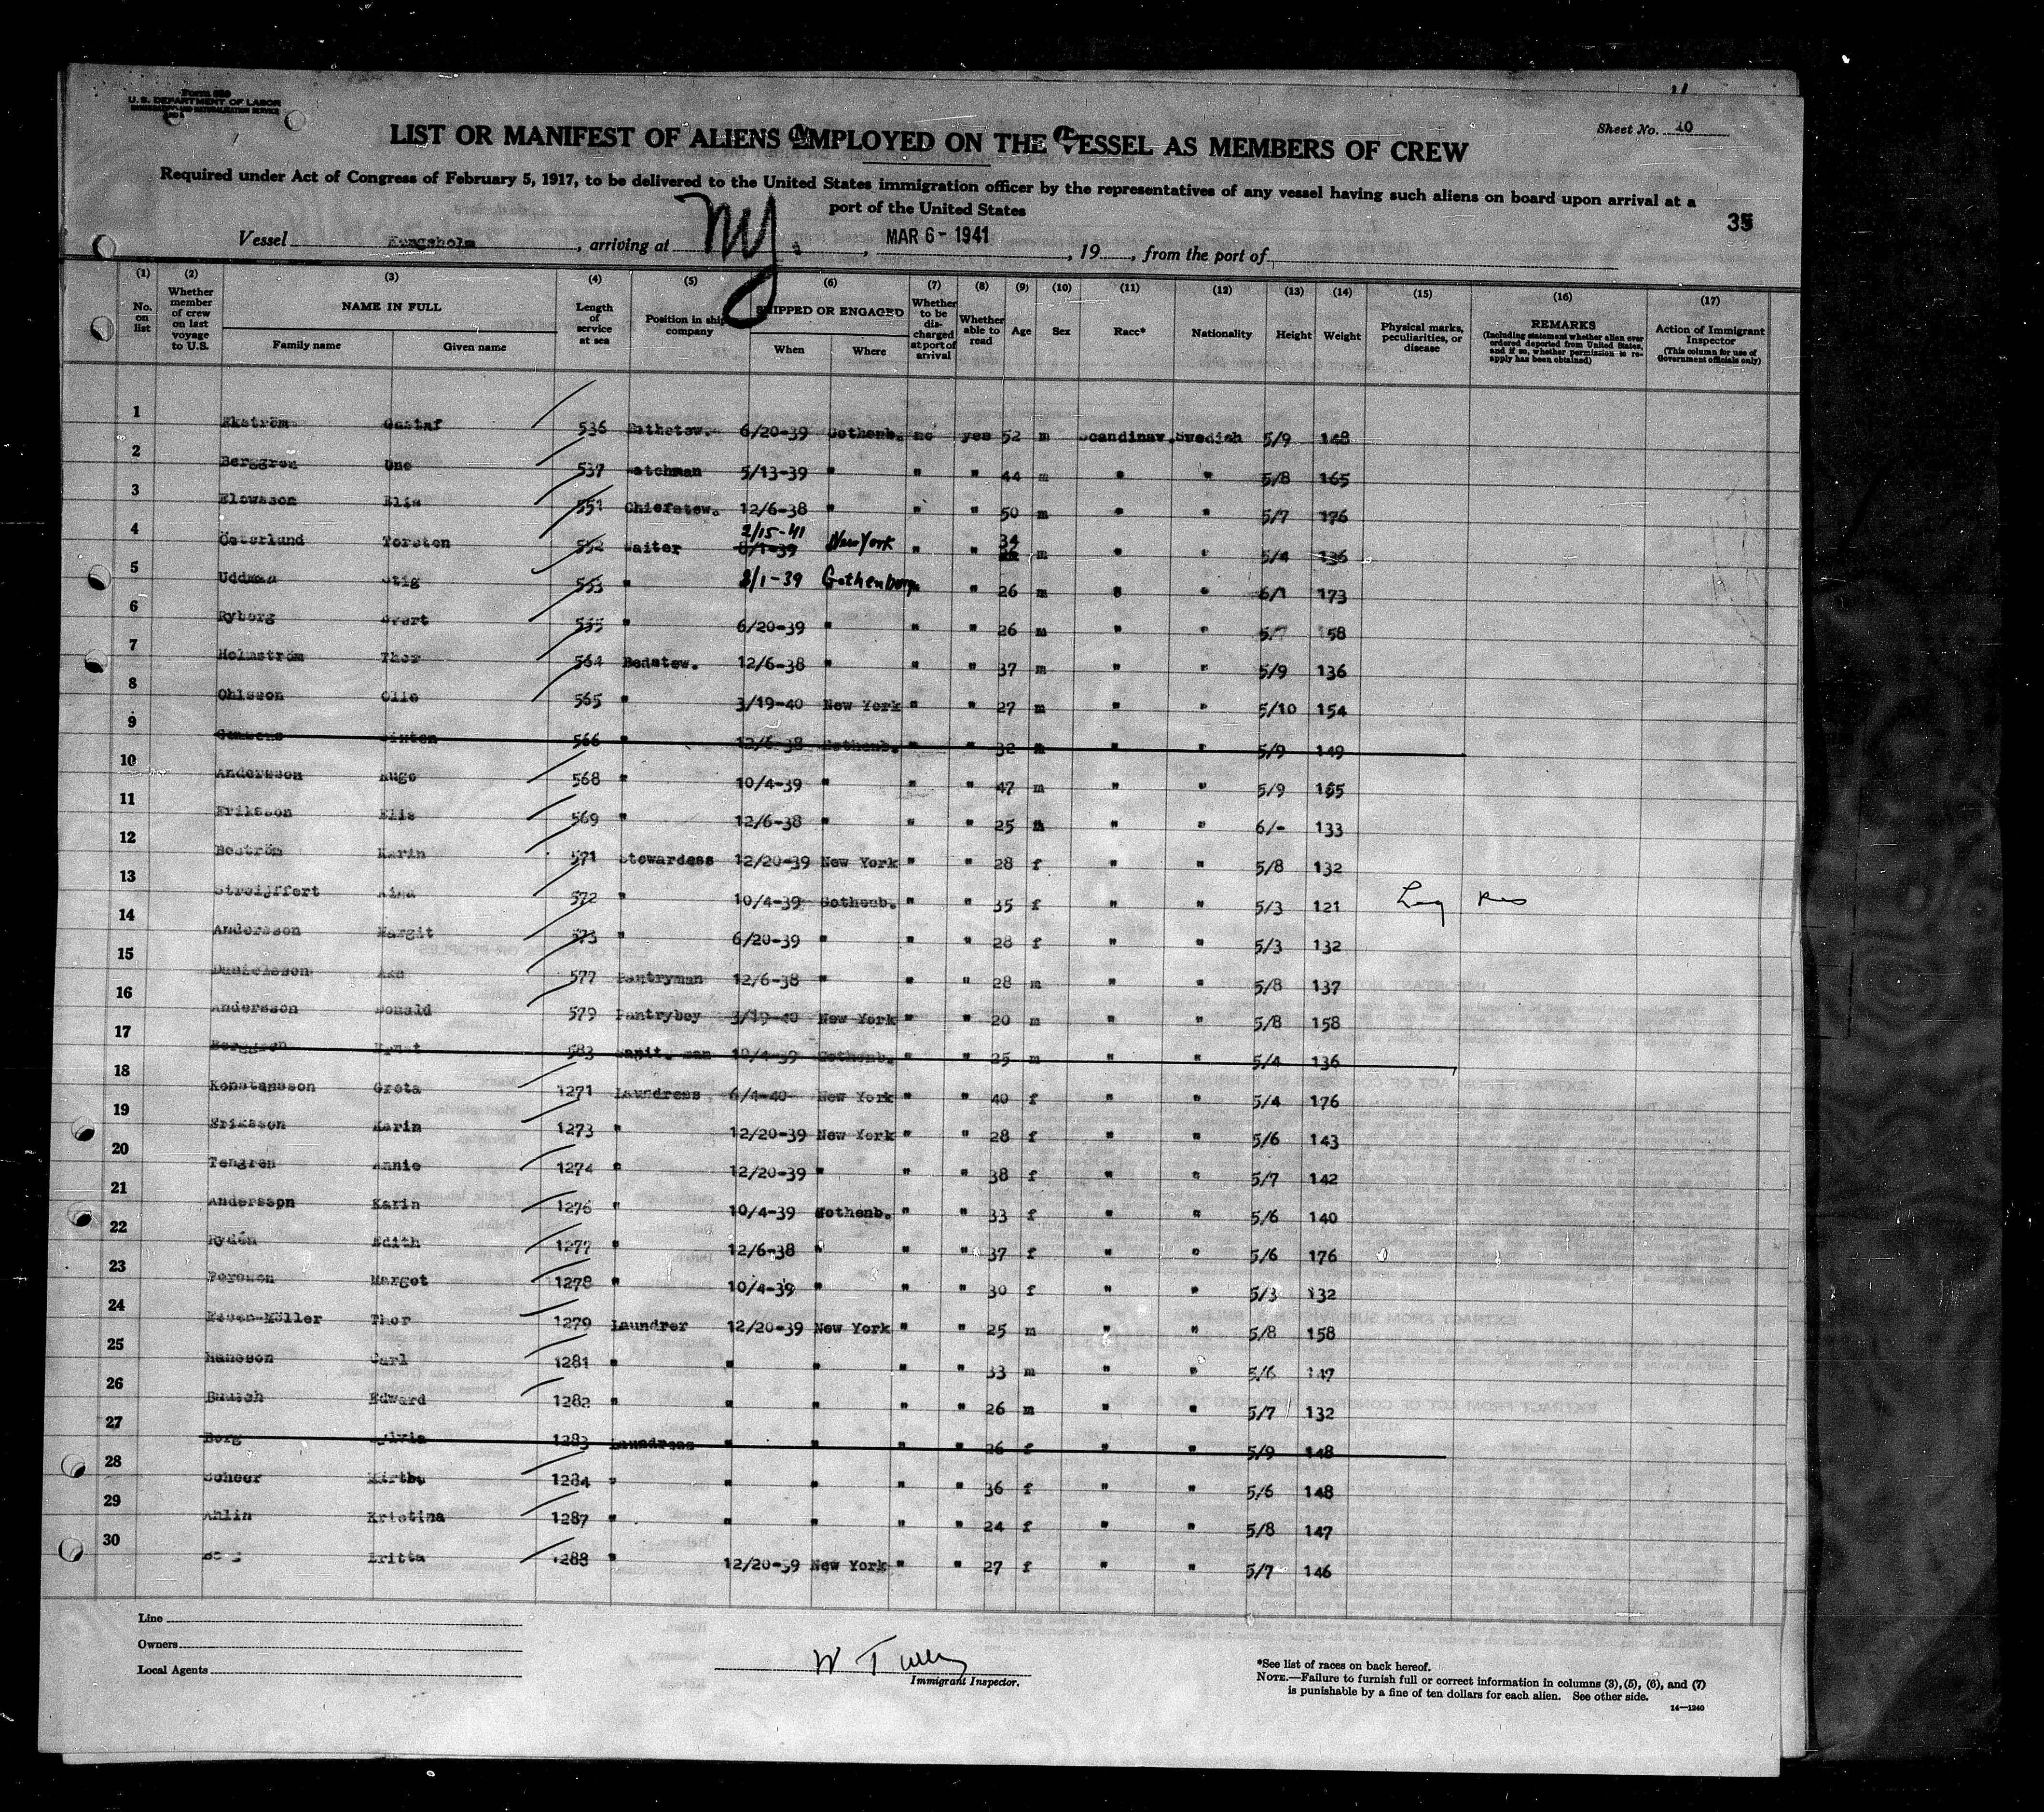 Form 689
U. S. DEPARTMENT OF LABOR
IMMIGRATION AND NATURALIZATION SERVICE
Sheet No. 10
LIST OR MANIFEST OF ALIENS EMPLOYED ON THE VESSEL AS MEMBERS OF CREW
Required under Act of Congress of February 5, 1917, to be delivered to the United States immigration officer by the representatives of any vessel having such aliens on board upon arrival at a
port of the United States
35
Vessel Kungsholm, arriving at NY, MAR 6 - 1941, 19, from the port of
(1) (2) (3) (4) (5) (6) (7) (8) (9) (10) (11) (12) (13) (14) (15) (16) (17)
No. on list
Whether member of crew on last voyage to U.S.
NAME IN FULL
Family name Given name
Length of service at sea
Position in ship company
SHIPPED OR ENGAGED
When Where
Whether to be discharged at port of arrival
Whether able to read
Age
Sex
Race*
Nationality
Height
Weight
Physical marks, peculiarities, or disease
REMARKS
(Including statement whether alien ever ordered deported from United States, and if so, whether permission to reapply has been obtained)
Action of Immigrant Inspector
(This column for use of Government officials only)
1 Ekström Gustaf 536 Bathstew. 6/20-39 Gothenb. no yes 52 m Scandinav. Swedish 5/9 148
2 Berggren Une 537 Watchman 5/13-39 " " " 44 m " " 5/8 165
3 Elowsson Elis 551 Chiefstew. 12/6-38 " " " 50 m " " 5/7 176
4 Österlund Torsten 552 Waiter 2/15-41 8/1-39 New York " " 34 m " " 5/4 136
5 Uddman Stig 553 " 8/1-39 Gothenborg " 26 m " " 6/1 173
6 Ryberg Evert 555 " 6/20-39 " " " 26 m " " 5/7 158
7 Holmström Thor 564 Bedstew. 12/6-38 " " " 37 m " " 5/9 136
8 Ohlsson Olle 565 " 3/19-40 New York " " 27 m " " 5/10 154
9 566 " 12/6-38 Gothenb. " " 32 m " " 5/9 149
10 Andersson Hugo 568 " 10/4-39 " " " 47 m " " 5/9 165
11 Eriksson Elis 569 " 12/6-38 " " " 25 m " " 6/- 133
12 Boström Karin 571 Stewardess 12/20-39 New York " " 28 f " " 5/8 132
13 Streijffert Aina 572 " 10/4-39 Gothenb. " " 35 f " " 5/3 121
14 Andersson Margit 573 " 6/20-39 " " " 28 f " " 5/3 132
15 Danielsson Åke 577 Pantryman 12/6-38 " " " 28 m " " 5/8 137
16 Andersson Donald 579 Pantryboy 3/19-40 New York " " 20 m " " 5/8 158
17 Berggren 583 10/4-39 Gothenb. " " 25 m " " 5/4 136
18 Konstansson Greta 1271 Laundress 6/4-40 New York " " 40 f " " 5/4 176
19 Eriksson Karin 1273 " 12/20-39 New York " " 28 f " " 5/6 143
20 Tengren Annie 1274 " 12/20-39 " " " 38 f " " 5/7 142
21 Andersson Karin 1276 " 10/4-39 Gothenb. " " 33 f " " 5/6 140
22 Rydén Edith 1277 " 12/6-38 " " " 37 f " " 5/6 176
23 Persson Margot 1278 " 10/4-39 " " " 30 f " " 5/3 132
24 Essen-Möller Thor 1279 Laundrer 12/20-39 New York " " 25 m " " 5/8 158
25 Hansson Carl 1281 " " " " " 33 m " " 5/6 147
26 Edward 1282 " " " " " 26 m " " 5/7 132
27 Borg Sylvia 1283 Laundress " " " " 26 f " " 5/9 148
28 Scheer Märtha 1284 " " " " " 36 f " " 5/6 148
29 Ahlin Kristina 1287 " " " " " 24 f " " 5/8 147
30 Britta 1288 " 12/20-39 New York " " 27 f " " 5/7 146
Line
Owners
Local Agents
W Tully
Immigrant Inspector.
*See list of races on back hereof.
NOTE.—Failure to furnish full or correct information in columns (3), (5), (6), and (7)
is punishable by a fine of ten dollars for each alien. See other side.
14—1240